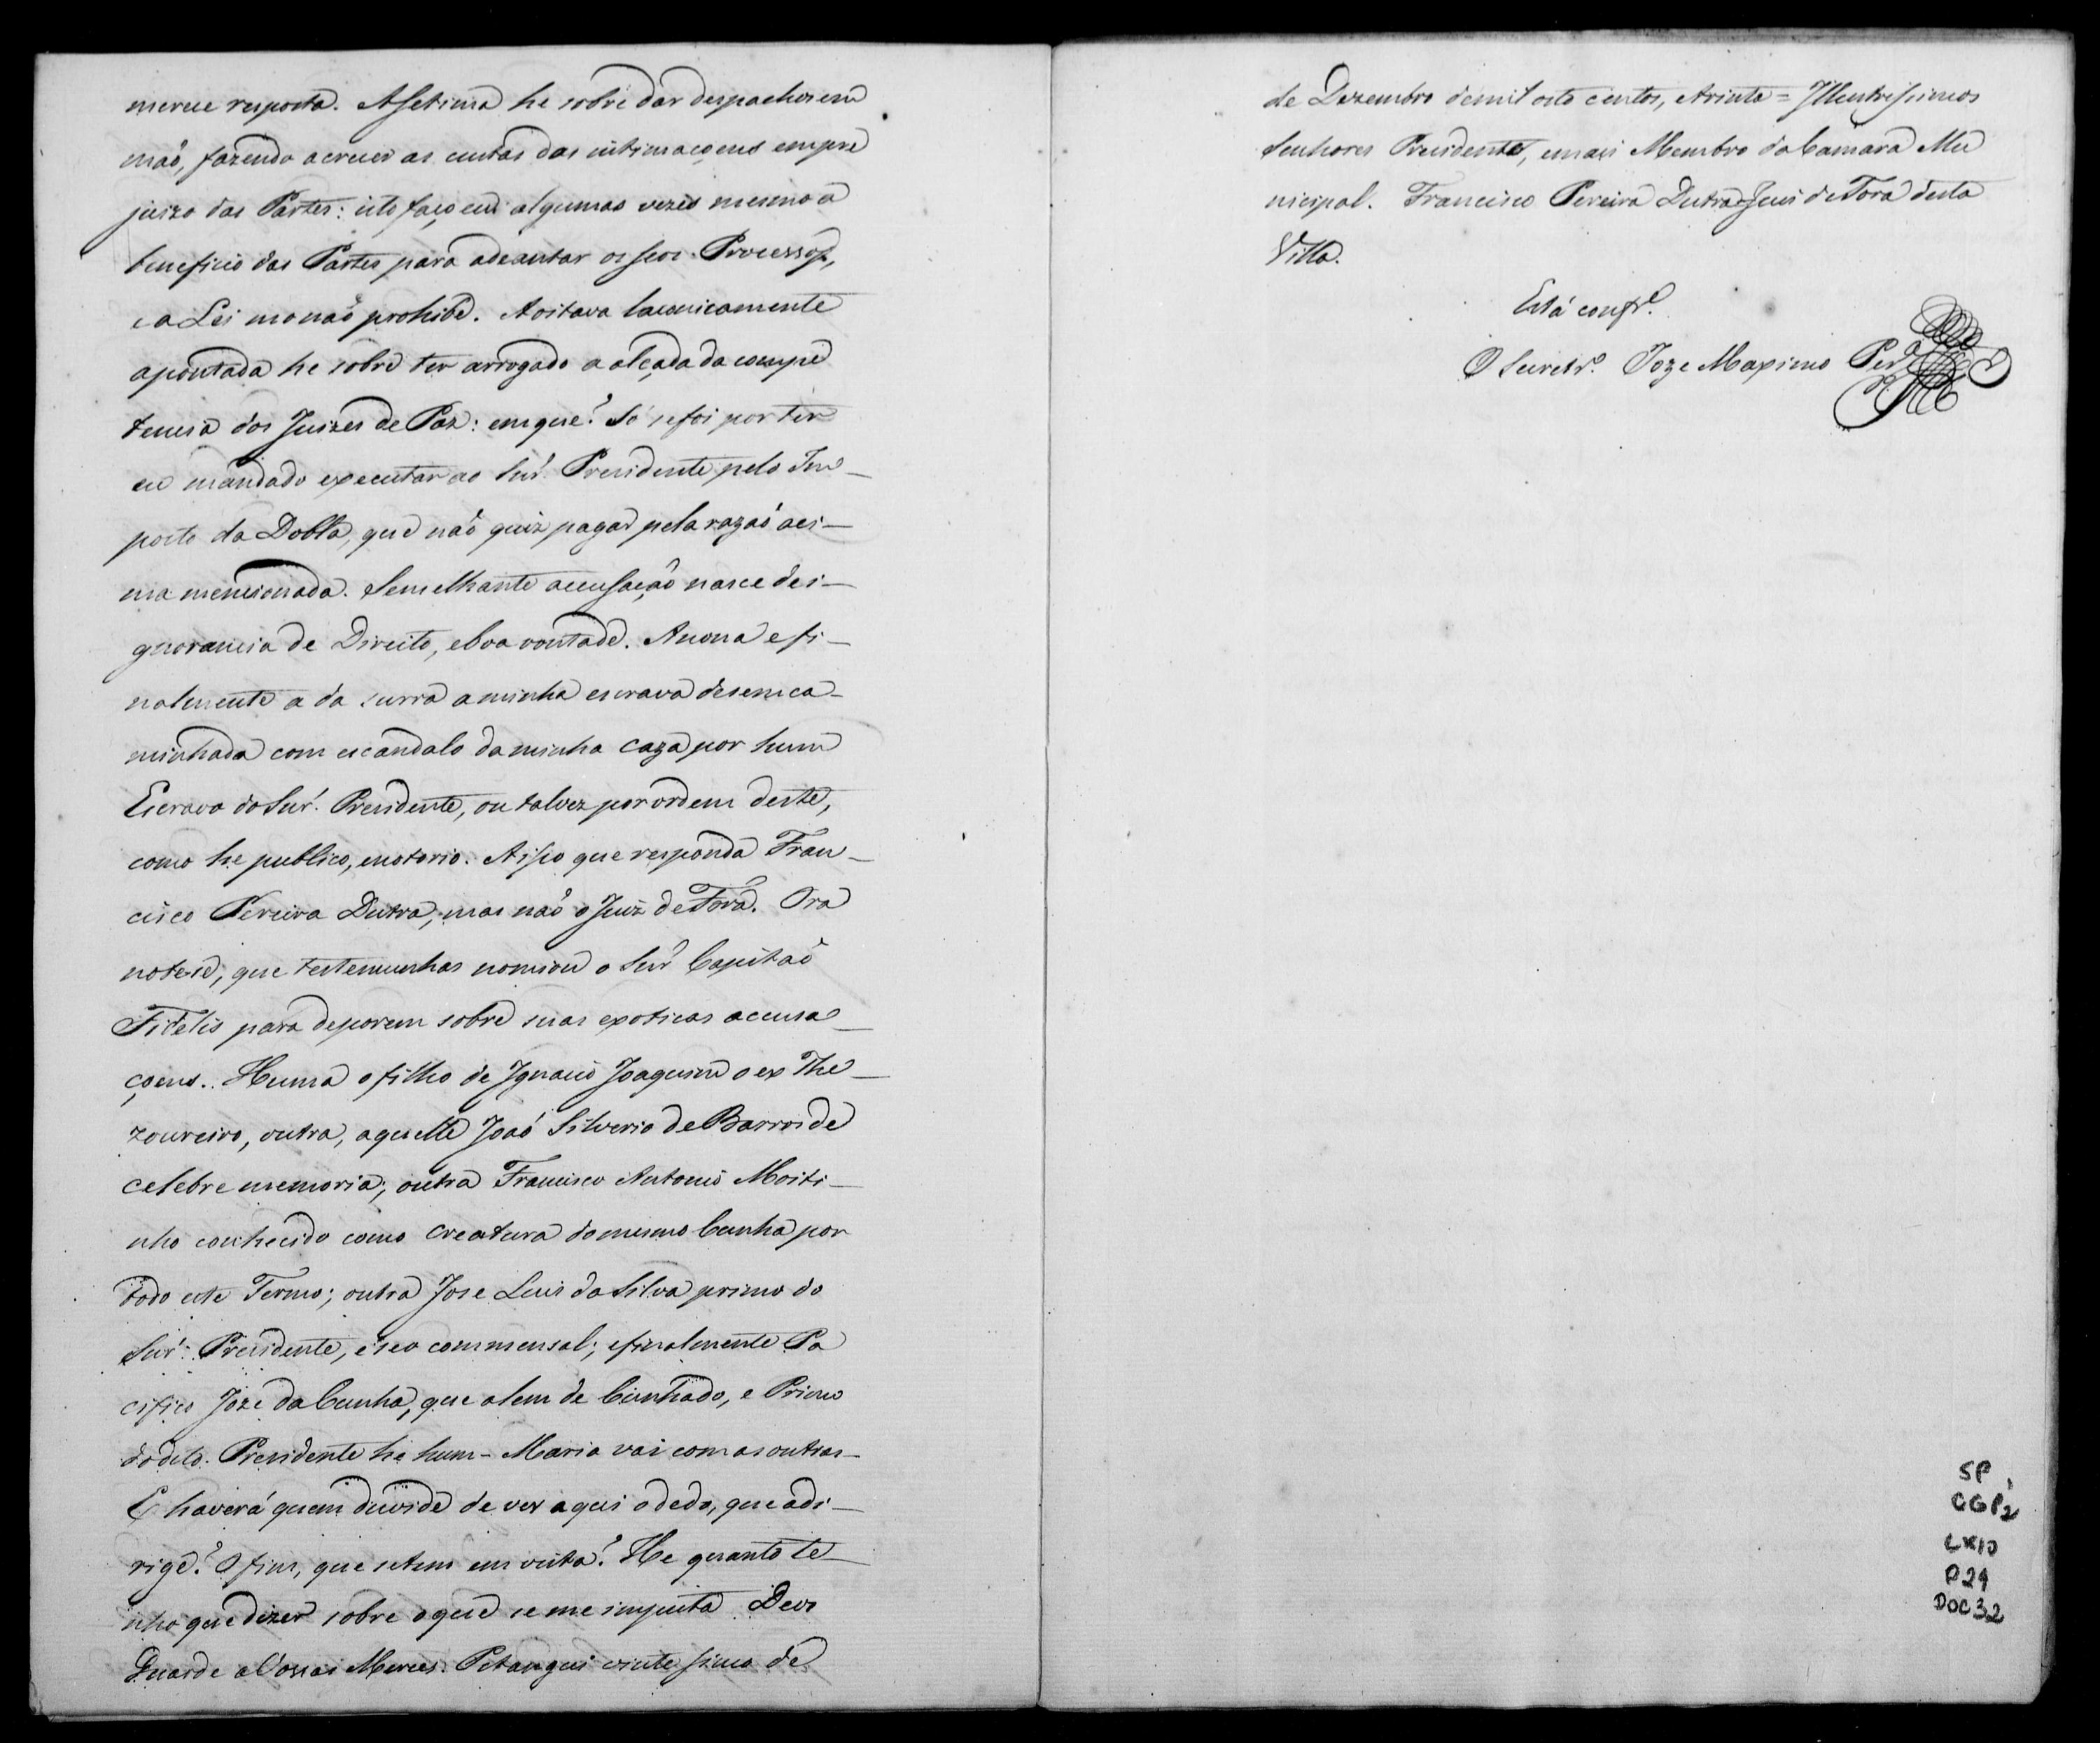 merece resposta. A Setima he sobre dar despachos em
mão, fazendo acrecer as custas das intimaçoens em pre
juizo das Partes: isto faço eu algumas vezes mesmo a
beneficio das Partes para adeantar os seos Processos,
e a Lei mo não prohibe. A oitava laconicamente
apontada he sobre ter arrogado a alçada da compe
tencia dos Juizes de Paz: em que? Só se foi por ter
eu mandado executar ao Snr. Presidente pelo Im-
posto da Dobla, que não quiz pagar pela razaõ aci-
ma mencionada. Semelhante accusação nasce de i-
gnorancia de Direito, e boa vontade. A nona e fi-
nalmente a da surra a minha escrava desenca-
minhada com escandalo da minha caza por hum
Escravo do Snr. Presidente, ou talvez por ordem deste,
como he publico, e notorio. A isso que responda Fran-
cisco Pereira Dutra, mas não o Juiz de Fóra. Ora
note-se, que testemunhas nomiou o Snr. Capitaõ
Fidelis para deporem sobre suas exoticas accusa-
çoens. Huma o filho de Ignacio Joaquim o ex The-
zoureiro, outra, aquelle Joaõ Silverio de Barros de
celebre memoria; outra Francisco Antonio Moiti-
nho conhecido como creatura do mesmo Cunha por
todo este Termo; outra Jose Luis da Silva primo do
Snr. Presidente, e seo commensal; e finalmente Pa
cifico Joze da Cunha, que alem de Cunhado, e Primo
do dito Presidente he hum - Maria vai com as outras -
E haverá quem duvide de ver aqui o dedo, que a di-
rige? O fim, que se tem em vista? He quanto te-
nho que dizer sobre o que se me imputa. Deos
Guarde a Vossas Merces. Pitangui vinte sinco de
de Dezembro de mil oito centos, e trinta = Illustrissimos
Senhores Presidente, e mais Membros da Camara Mu
nicipal. Francisco Pereira Dutra Juis de Fora desta
Villa.
Está confe.
O Secretr.o Joze Maximo Per.a
SP
CGP2
CX10
P29
DOC32